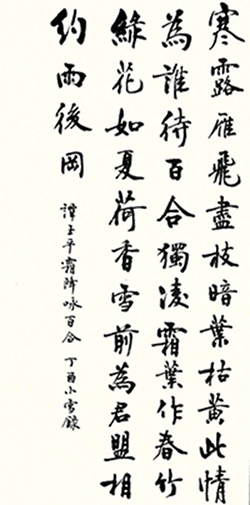 寒露雁飛盡枝暗葉枯黃此情
為誰待百合獨凌霜葉作春竹
綠花如夏荷香雪前為君盟相
約雨後岡
譚玉平霜降詠百合 丁酉小雪錄